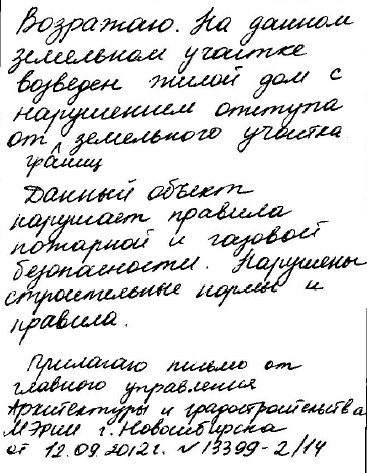 Возражаю. На данном
земельном участке
возведен жилой дом с
нарушением отступа
от земельного участка
границ
Данный объект
нарушает правила
пожарной и газовой
безопасности. Нарушены
строительные нормы и
правила.
Прилагаю письмо от
главного управления
Архитектуры и градостроительства
МЭРИИ г. Новосибирска
от 12.09.2012г. N 13399-2/14